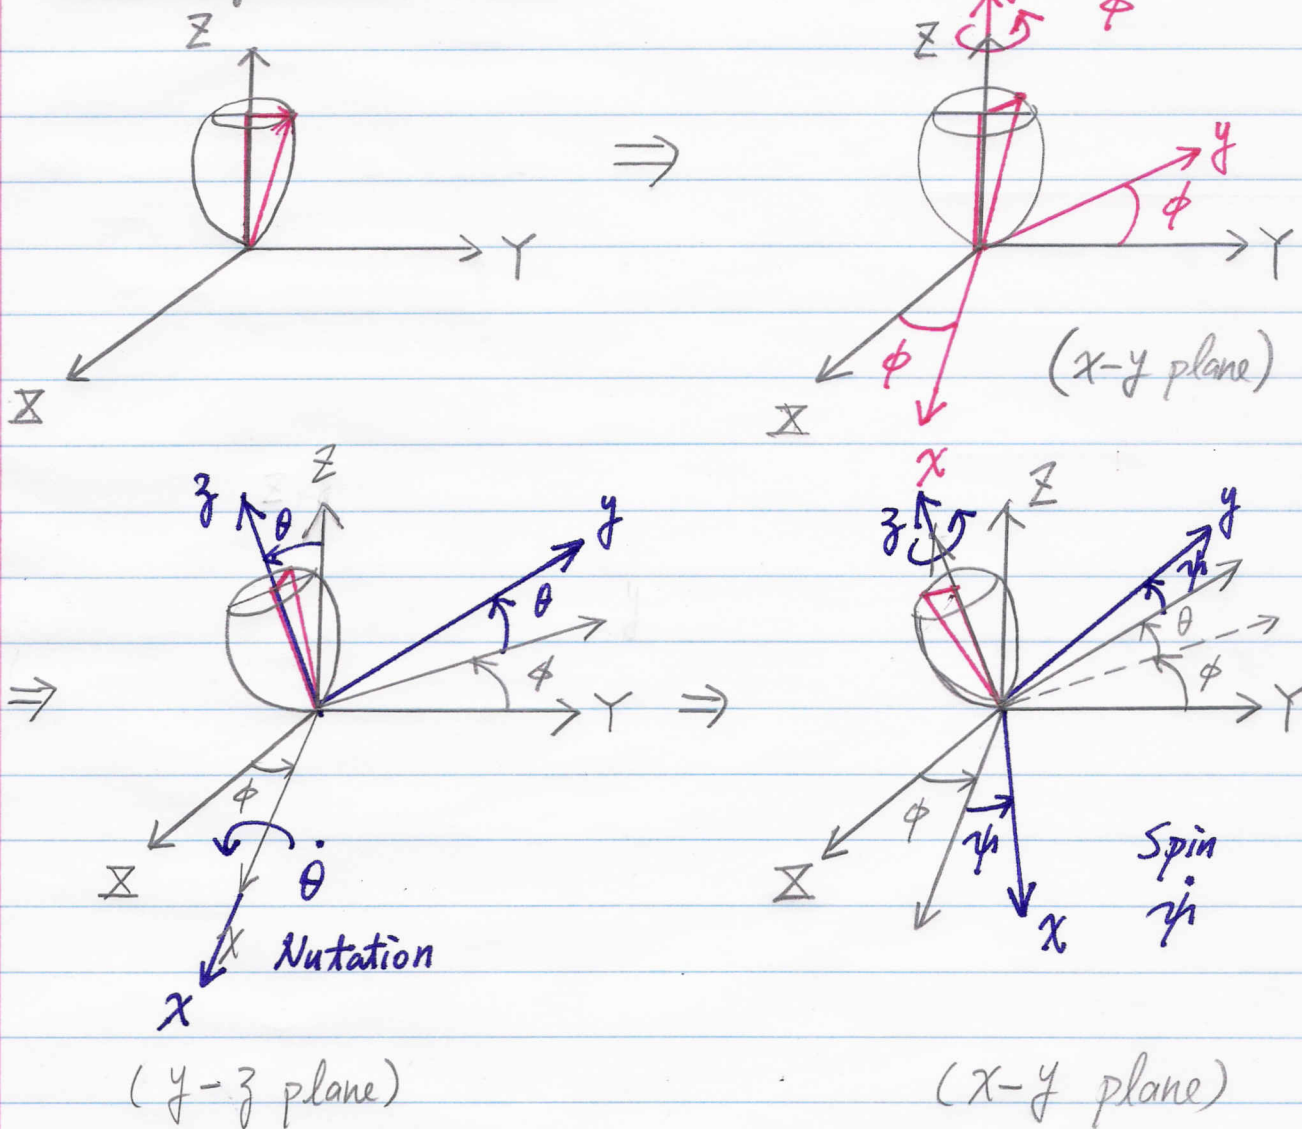 Z
Y
X
⇒
Z
φ
y
φ
Y
φ
X
x
(x-y plane)
z
θ
Z
y
θ
φ
Y
⇒
φ
X
θ̇
x
Nutation
x
(y-z plane)
⇒
z
Z
y
ψ
θ
φ
Y
φ
X
ψ
x
Spin
ψ̇
(x-y plane)